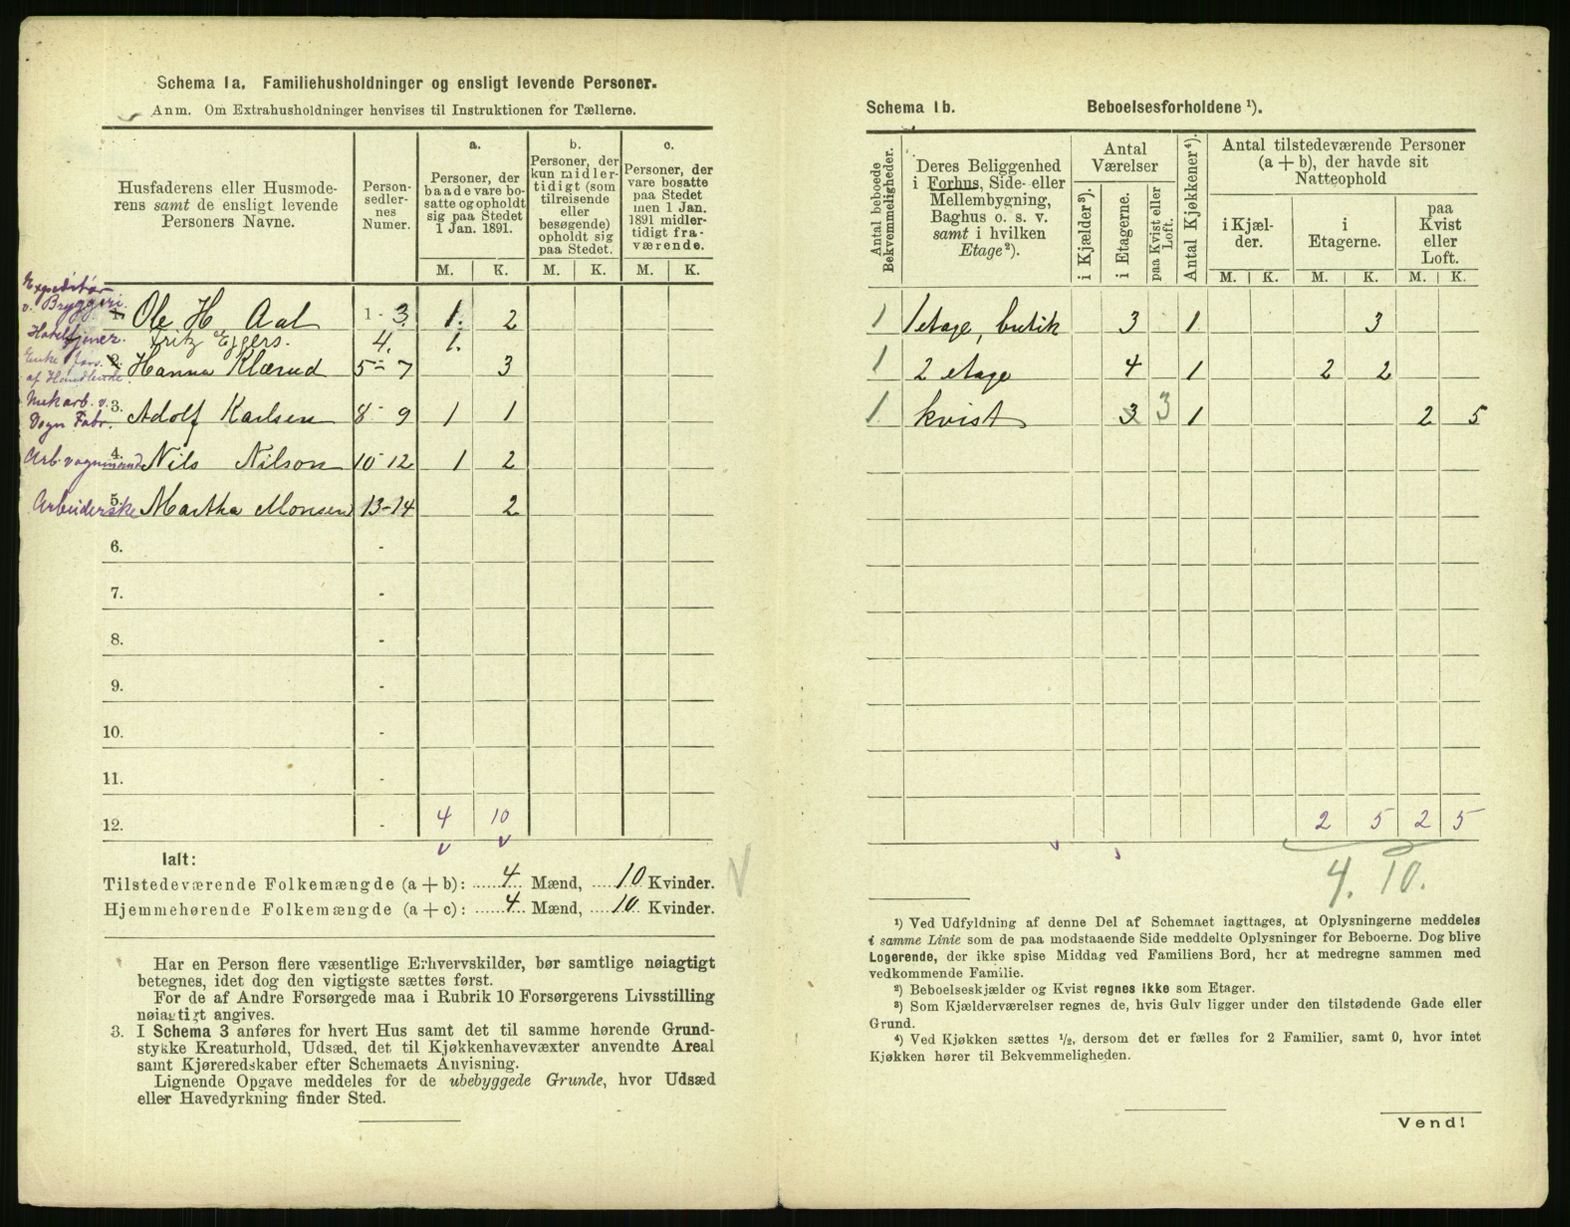 Schema 1a. Familiehusholdninger og ensligt levende Personer.
Anm. Om Extrahusholdninger henvises til Instruktionen for Tællerne.
Husfaderens eller Husmode-
rens samt de ensligt levende
Personers Navne.
Person-
sedler-
nes
Numer.
a.
Personer, der
baade vare bo-
satte og opholdt
sig paa Stedet
1 Jan. 1891.
b.
Personer, der
kun midler-
tidigt (som
tilreisende
eller
besøgende)
opholdt sig
paa Stedet.
c.
Personer, der
vare bosatte
paa Stedet
men 1 Jan.
1891 midler-
tidigt fra-
værende.
M. K. M. K. M. K.
Expeditør
v. Bryggeri.
1. Ole H Aal 1 - 3. 1. 2
Fritz Eggers. 4. 1.
2. Hanna Klærud 5 - 7 3
Mek arb. v.
Vogn Fabr.
3. Adolf Karlsen 8 - 9 1 1
4. Nils Nilson 10 - 12 1 2
Arbeiderske 5. Martha Monsen 13 - 14 2
6. -
7. -
8. -
9. -
10. -
11. -
12. - 4 10
Ialt:
Tilstedeværende Folkemængde (a + b): 4 Mænd, 10 Kvinder.
Hjemmehørende Folkemængde (a + c): 4 Mænd, 10 Kvinder.
Har en Person flere væsentlige Erhvervskilder, bør samtlige nøiagtigt
betegnes, idet dog den vigtigste sættes først.
For de af Andre Forsørgede maa i Rubrik 10 Forsørgerens Livsstilling
nøiagtigt angives.
3. I Schema 3 anføres for hvert Hus samt det til samme hørende Grund-
stykke Kreaturhold, Udsæd, det til Kjøkkenhavevæxter anvendte Areal
samt Kjøreredskaber efter Schemaets Anvisning.
Lignende Opgave meddeles for de ubebyggede Grunde, hvor Udsæd
eller Havedyrkning finder Sted.
Schema 1b. Beboelsesforholdene ¹).
Antal beboede
Bekvemmeligheder.
Deres Beliggenhed
i Forhus, Side- eller
Mellembygning,
Baghus o. s. v.
samt i hvilken
Etage ²).
Antal
Værelser
i Kjælder ³).
i Etagerne.
paa Kvist eller
Loft.
Antal Kjøkkener ⁴).
Antal tilstedeværende Personer
(a + b), der havde sit
Natteophold
i Kjæl-
der.
i
Etagerne.
paa
Kvist
eller
Loft.
M. K. M. K. M. K.
1 1 etage, butik 3 1 3
1 2 etage 4 1 2 2
1 kvist 3 3 1 2 5
2 5 2 5
4. 10.
¹) Ved Udfyldning af denne Del af Schemaet iagttages, at Oplysningerne meddeles
i samme Linie som de paa modstaaende Side meddelte Oplysninger for Beboerne. Dog blive
Logerende, der ikke spise Middag ved Familiens Bord, her at medregne sammen med
vedkommende Familie.
²) Beboelseskjælder og Kvist regnes ikke som Etager.
³) Som Kjælderværelser regnes de, hvis Gulv ligger under den tilstødende Gade eller
Grund.
⁴) Ved Kjøkken sættes ½, dersom det er fælles for 2 Familier, samt 0, hvor intet
Kjøkken hører til Bekvemmeligheden.
Vend!